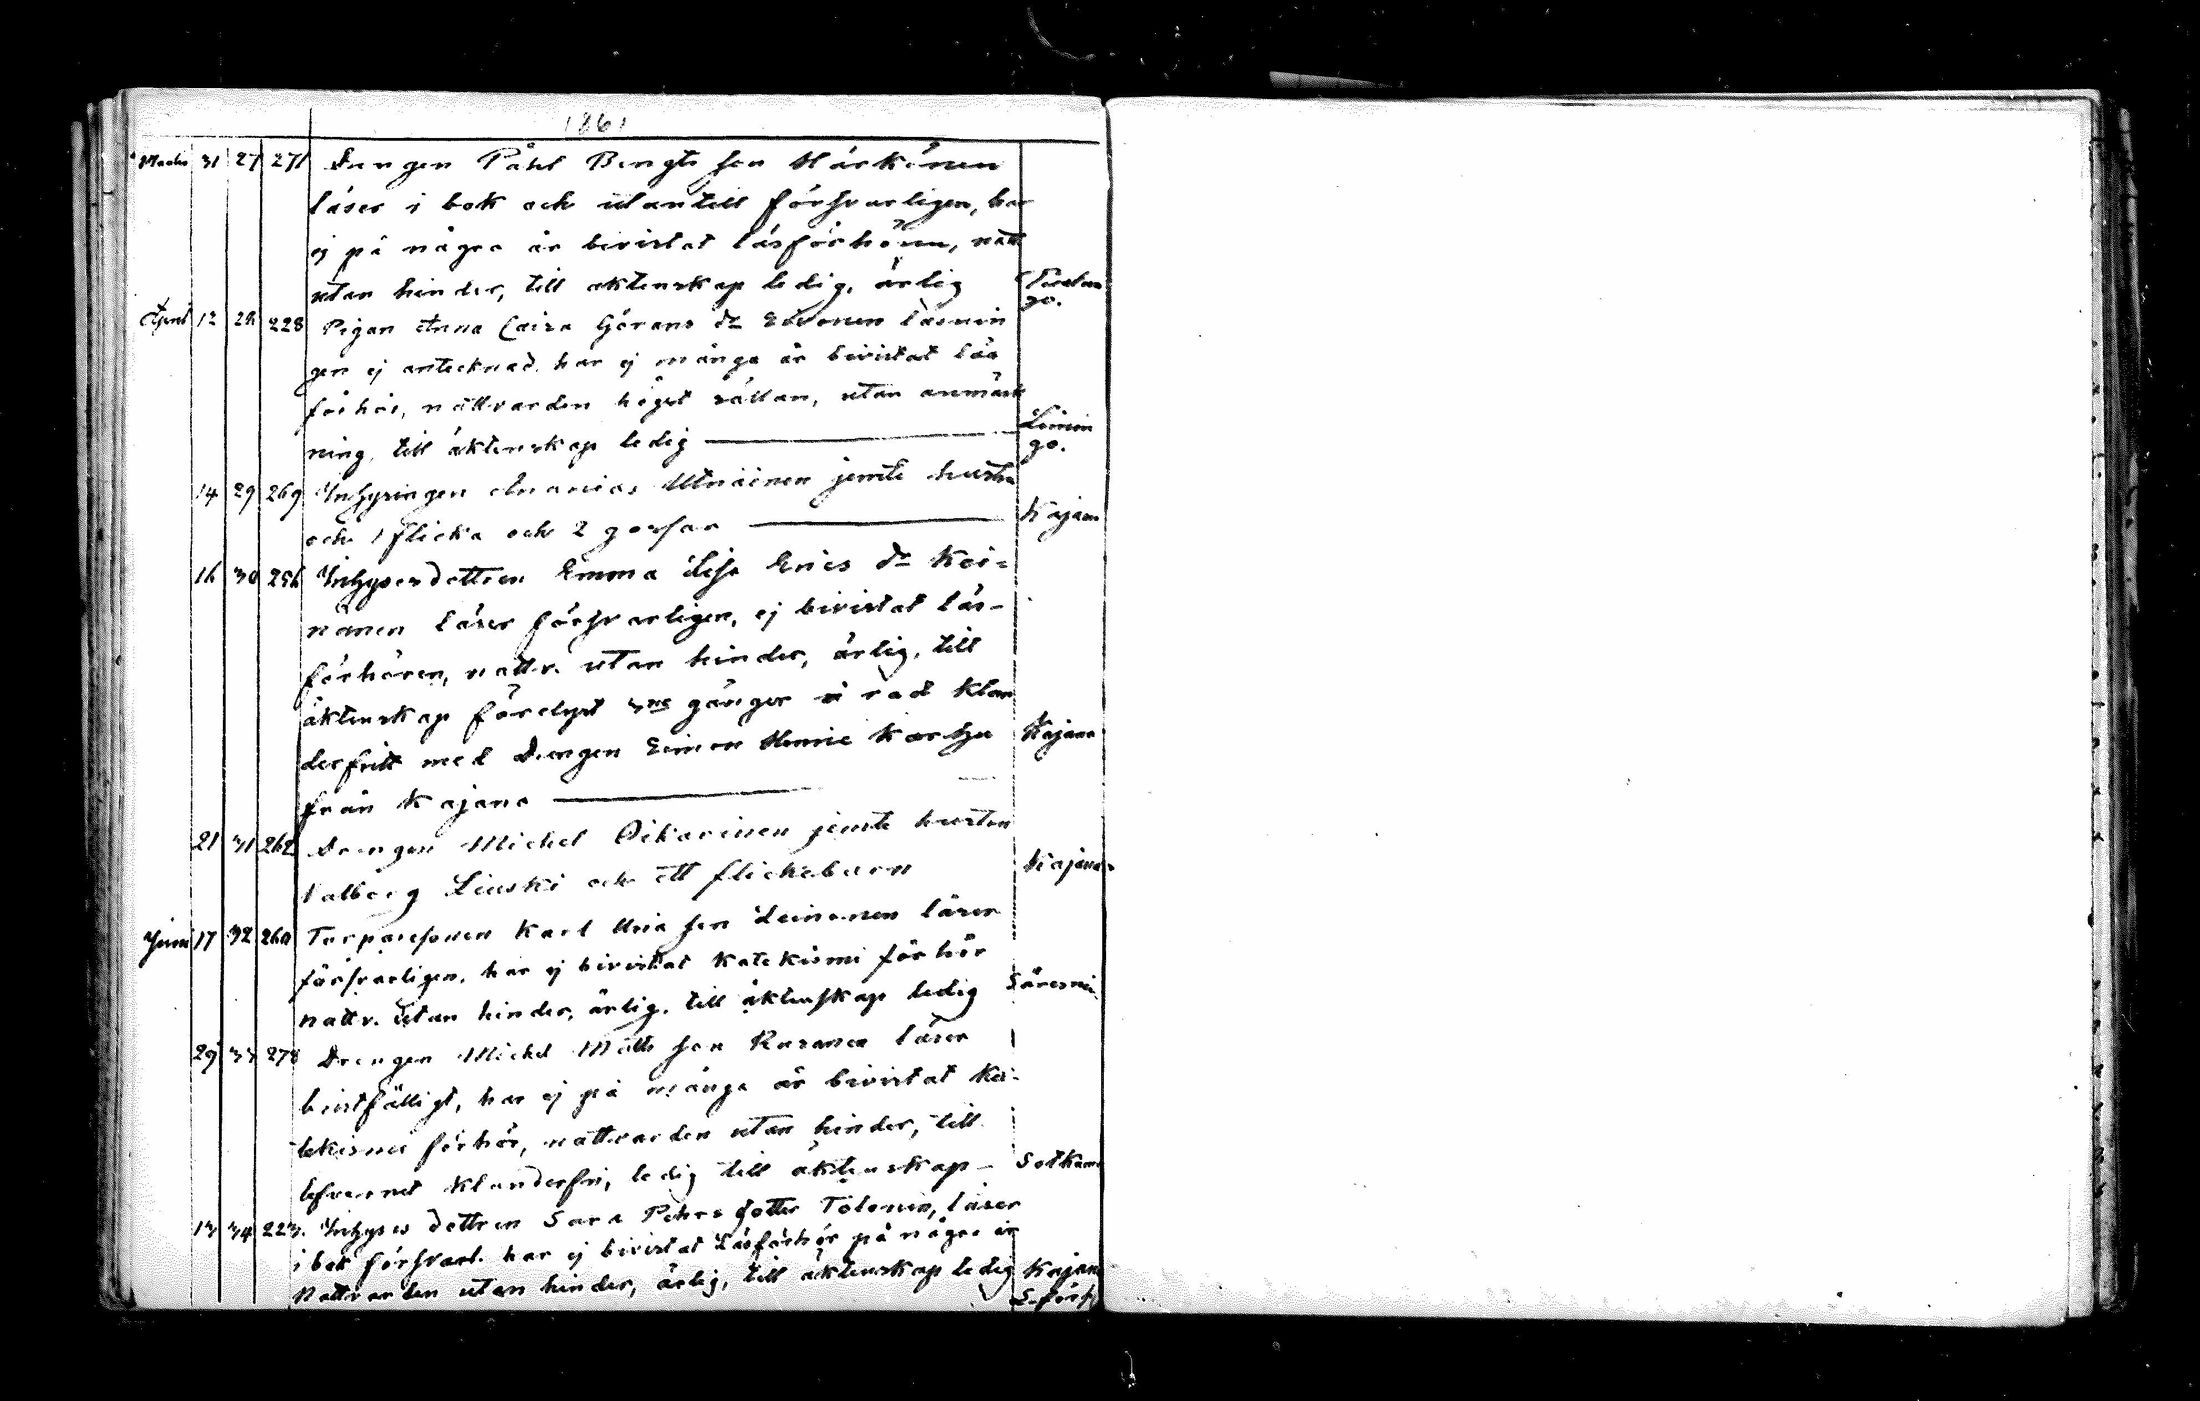 1861
Martii 31 27 271 Drengen Påhl Bengts son Härkönen
läser i bok och utantill försvarligen, har
ej på några år bevistat läsförhören, natt
utan hinder, till äktenskap ledig, ärlig
April 12 28 228 Pigan Anna Caisa Görans dr läsnin
gen ej antecknad, har ej många år bevistat läs
förhör, nattvarden högst sällan, utan anmärk
ning, till äktenskap ledig Limin
go.
14 29 269 Inhysingen Ananias jemte hustru
och 1 flicka och 2 gossar Kajana
16 30 256 Inhysesdottren Emma Lisa Erics dr Kei=
nänen läser försvarligen, ej bevistat läs-
förhören, nattv. utan hinder, ärlig, till
äktenskap förelyst 3ne gånger i rad klan
derfritt med Drengen Simon Karhu Kajana
från Kajana
21 31 262 Drengen Michel Oikarinen jemte hustrun
Valborg och ett flickebarn Kajana
Junii 17 32 260 Torparesonen Karl son Leinonen läser
försvarligen, har ej bevistat katekismi förhör
nattv. utan hinder, ärlig, till äktenskap ledig Säresnie
29 33 278 Drengen Michel Matts son läser
bristfälligt, har ej på många år bevistat ka-
tekismi förhör, nattvarden utan hinder, till
lefvernet klanderfri, ledig till äktenskap – Sotkamo
13 34 223. Inhyses dottren Sara Pehrs dotter Tolonen, läser
i bok försvarl. har ej bevistat Läsförhör på några år
Nattvarden utan hinder, ärlig, till äktenskap ledig Kajana